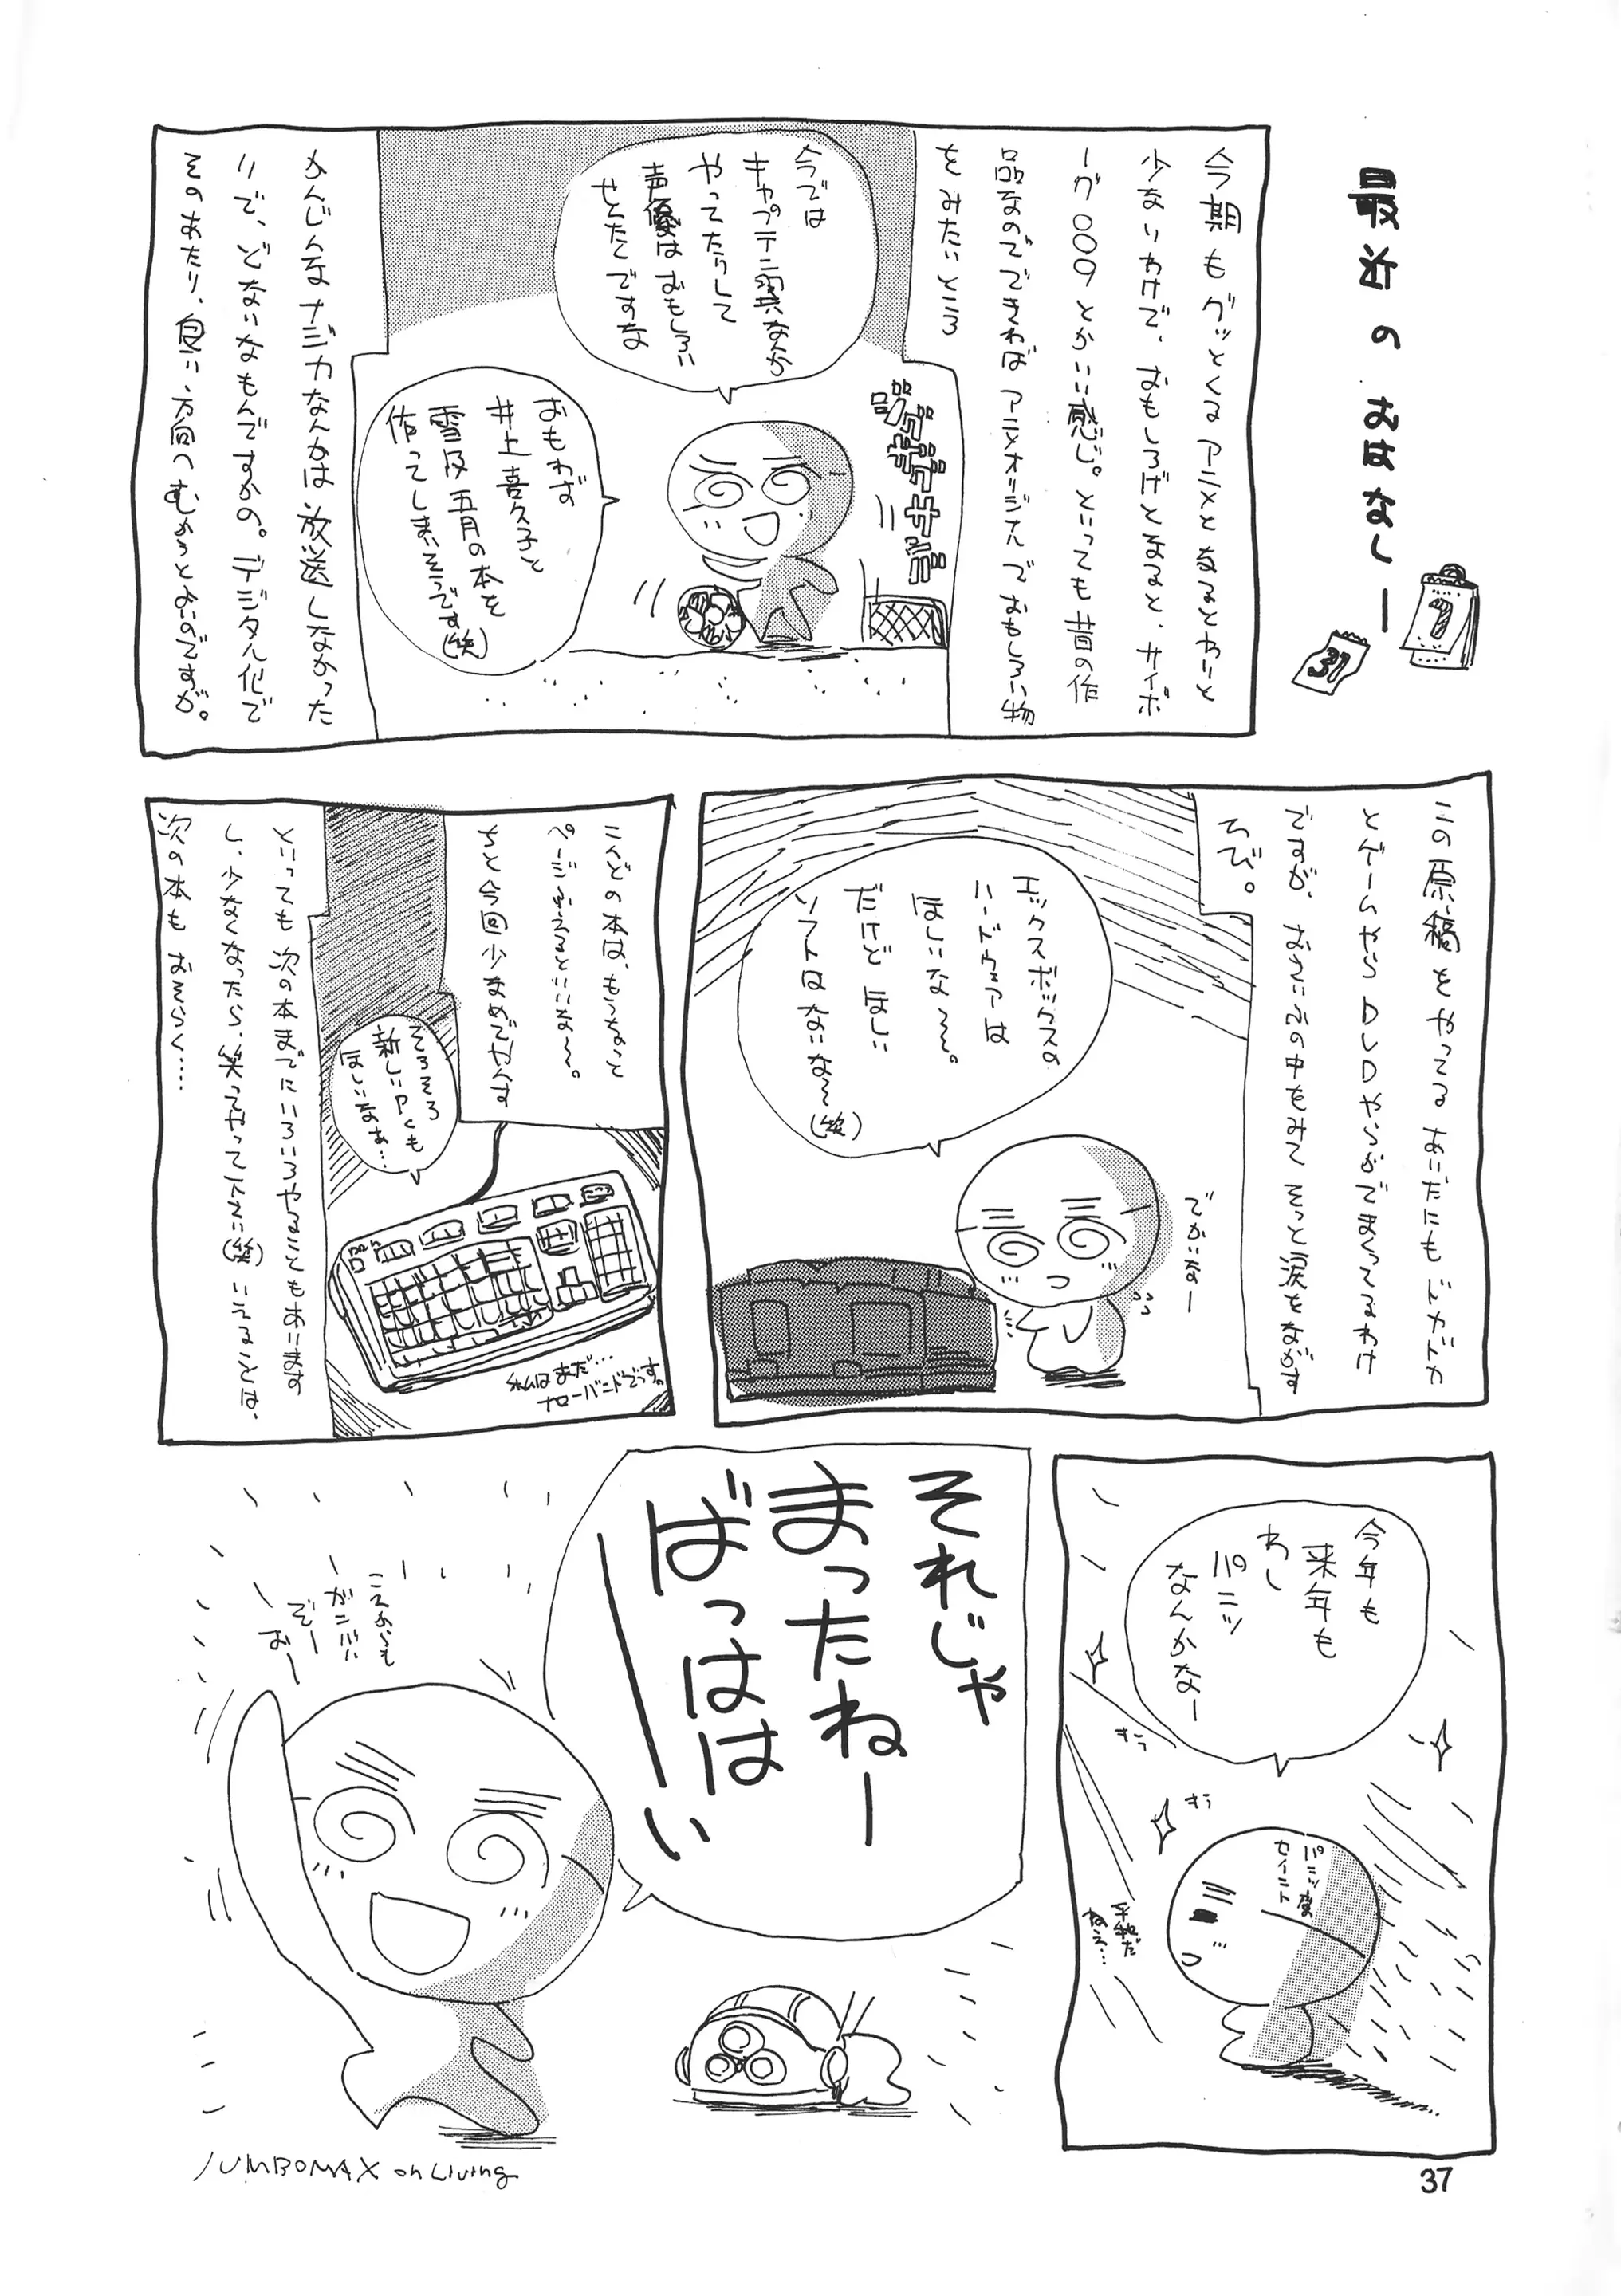 最近のおはなしー
7
31
今期もグッとくるアニメとなるとわりと
少ないわけで、おもしろげとなると、サイボ
ーグ009とかいい感じ。といっても昔の作
品なのでできればアニメオリジナルでおもしろい物
をみたいところ
今では
キャプテン翼なんか
やってたりして
声優はおもしろい
せんたくですな
おもわず
井上喜久子と
雪及五月の本を
作ってしまいそうです(笑)
かんじんなナジカなんかは放送しなかった
りで、どないなもんですかの。デジタル化で
そのあたり、良い方向へむかうとよいのですが。
この原稿をやってるあいだにもドカドカ
とゲームやらDVDやらがでまくってるわけ
ですが、おさいふの中をみてそっと涙をながす
ひび。
エックスボックスの
ハードウェアは
ほしいな〜。
だけどほしい
ソフトはないな〜(笑)
でかいなー
こんどの本は、もうちっと
ページふえるといいな〜。
ちと今回少なめでやんす
そろそろ
新しいPCも
ほしいなぁ…
私はまだ…
ナローバンドでっす。
といっても次の本までにいろいろやることもあります
し、少なくなったら、笑ってやって下さい(笑)いえることは、
次の本もおそらく……
今年も
来年も
わし
パンツ
なんかなー
キラ
キラ
パンツ度の
セイント
平和だ
ねぇ…
それじゃ
まったねー
ばっはは
ーい
これからも
ガンバル
ぞー
おー
JUMBOMAX on Living
37